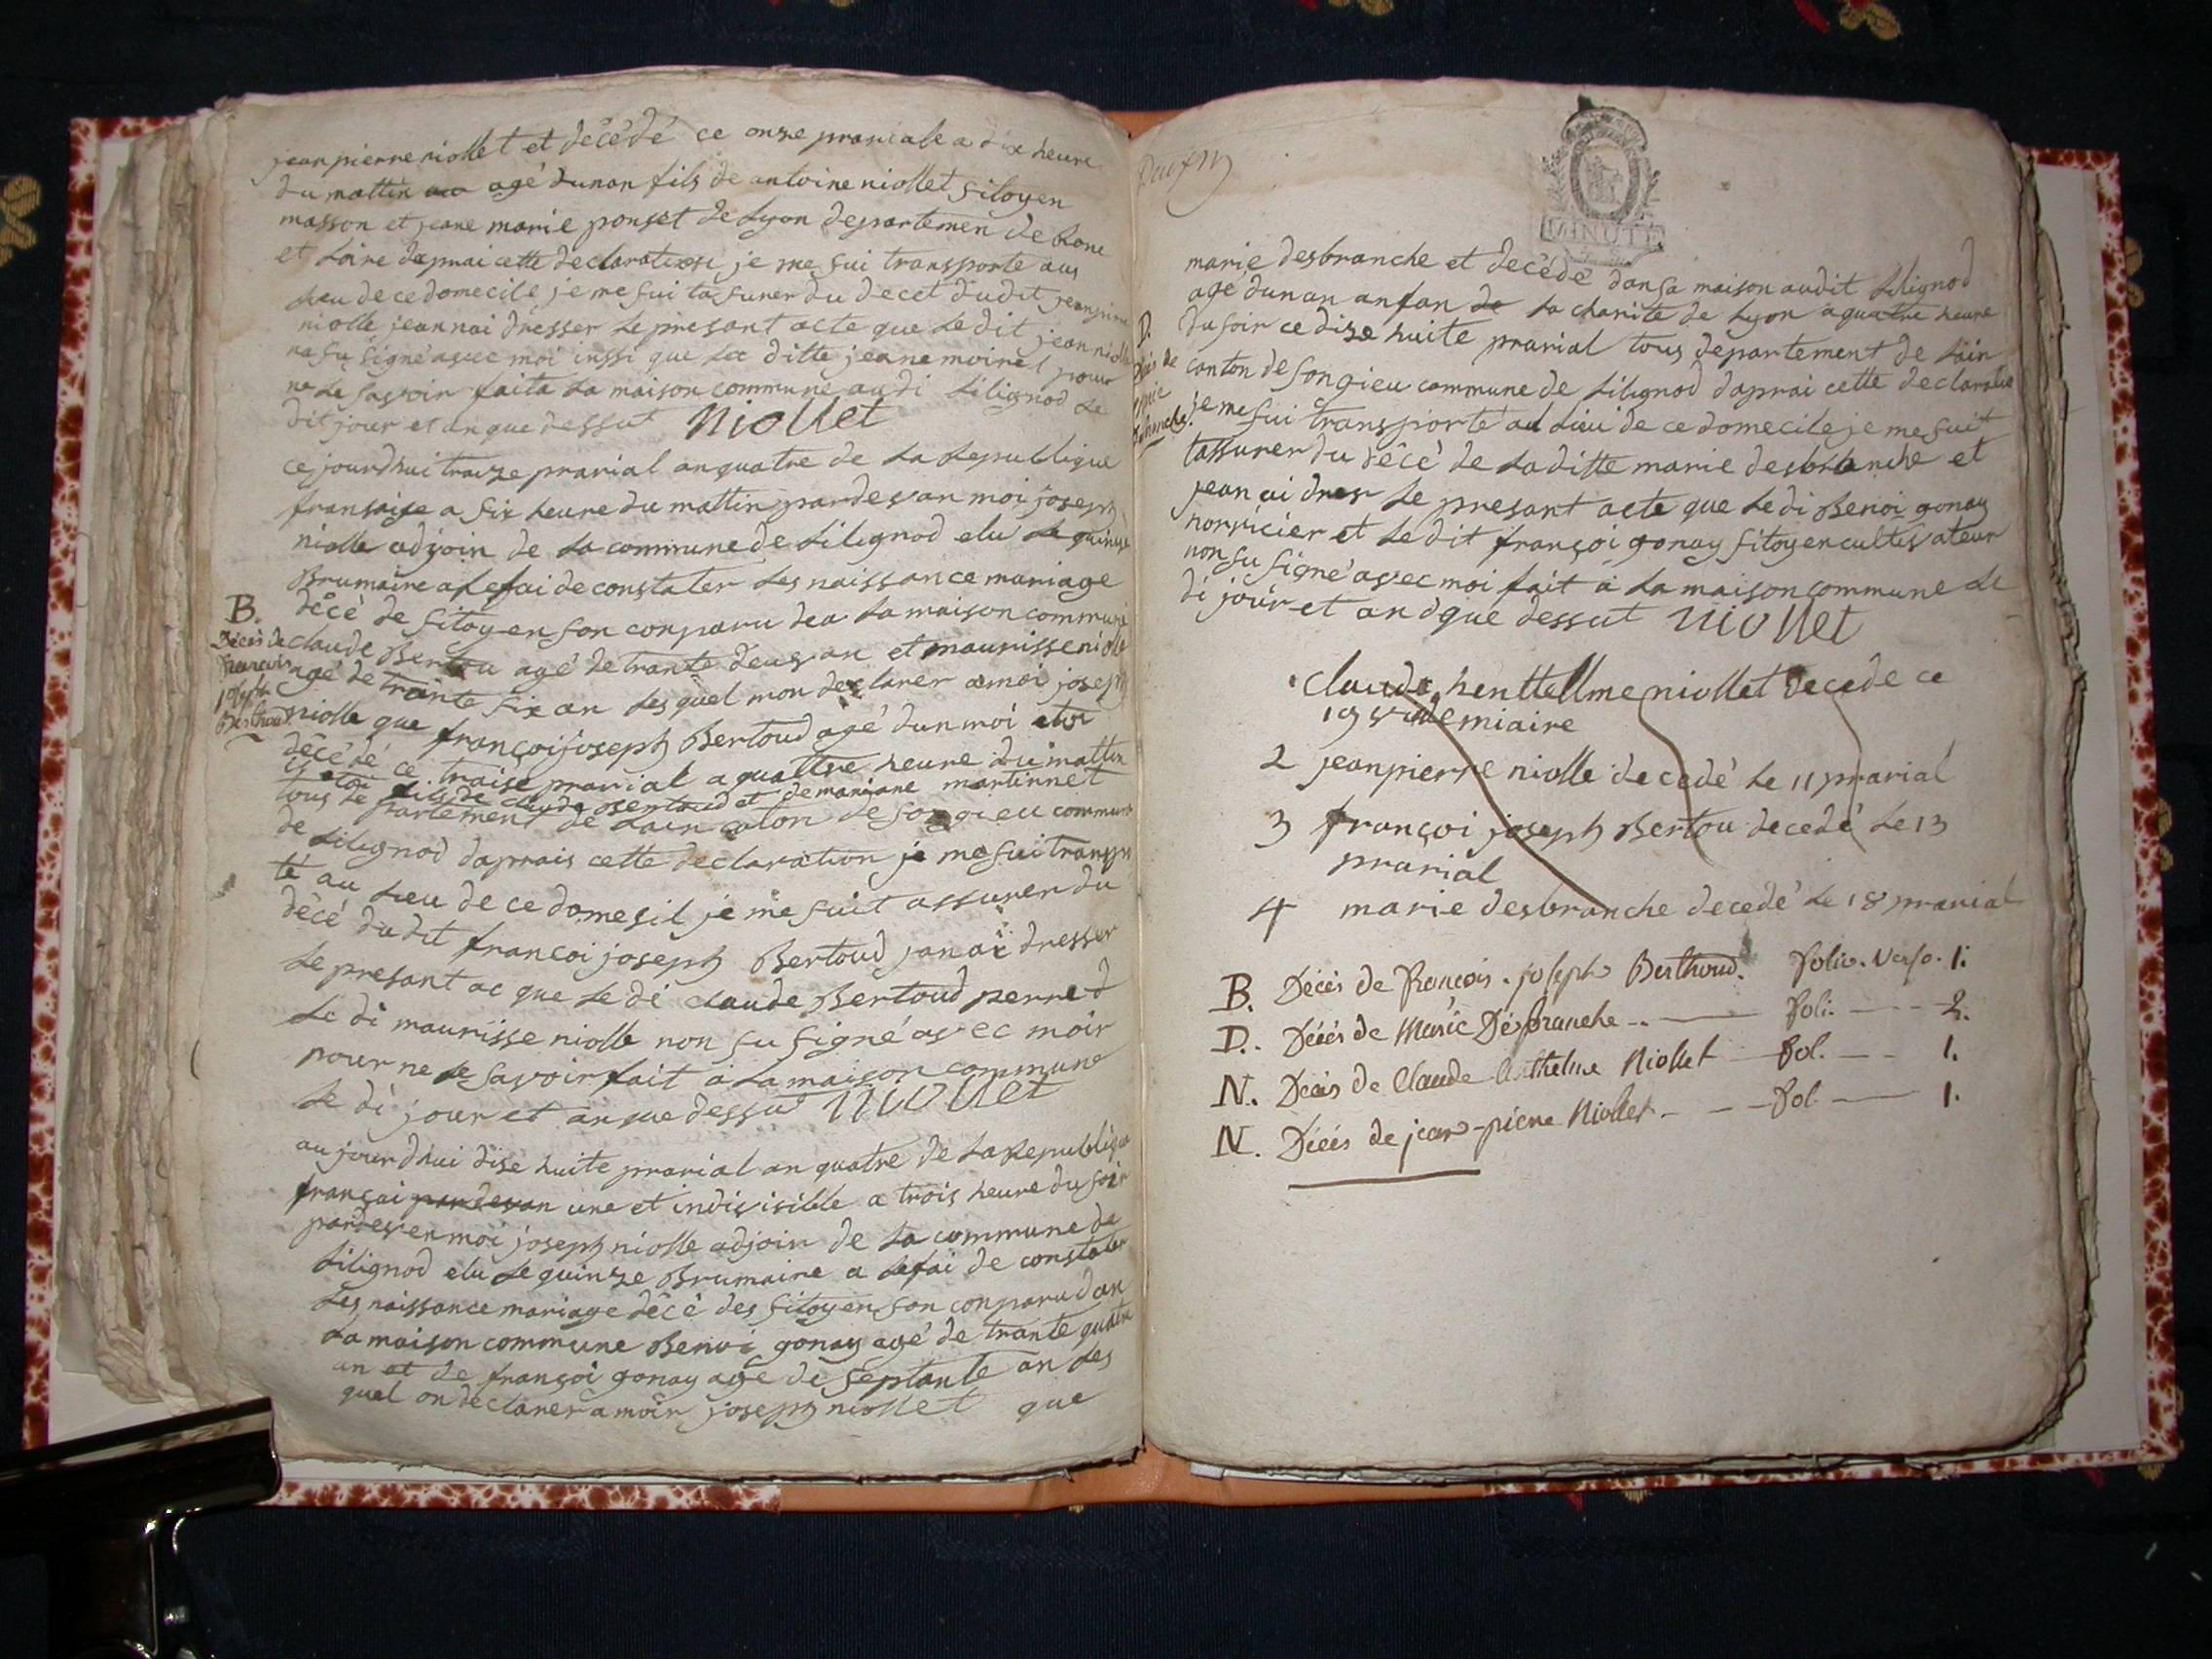 jean pierre niollet et décédé ce onze prariale a dix heure
du mattin au agé dunan fils de antoine niollet sitoyen
masson et jeane marie ponset de Lyon departemen de Rone
et Loire daprai cette declaration je me sui transporte aus
lieu de ce domecile je me sui tassurer du decet dudit jeanpierre
niolle jeannai dresser le presant acte que Ledit jean niolle
na su signé avec moi inssi que la ditte jeane moinet pour
ne Le savoir faita La maison commune audi Lilignod Le
dit jour et anque dessut Niollet
ce jourdhui traize prarial anquatre de La Republique
fransaise a six heure du mattin pardevan moi joseph
niolle adjoin de La commune de Lilignod elu Le quinze
Brumaire a Lefai de constater Les naissance mariage
B. décé de sitoyen son conparu dea La maison commune
Décès de François joseph Berthoud.
claude Bertou agé de trante deus an et maurisse niolle
agé de trante six an Lesquel mon declarer amoi joseph
niolle que françoi joseph Bertoud agé dun moi etoi
décédé ce traise prarial a quattre heure du mattin
il etoi fils de claude Bertoud et de mariane martinnet
tous Le partement de Lain canton de songieu commune
de Lilignod daprais cette declaration je me sui transpor
té au Lieu de ce domesil je me suit assurer du
décé dudit françoi joseph Bertoud jan ai dresser
Le presant ac que Le di claude Bertoud perre et
Le di maurisse niolle non su signé avec moir
pour ne Le savoir fait a La maison commune
Le di jour et anque dessut Niollet
aujourdhui dise huite prarial an quatre de La Republique
françai pardevan une et indivisible a trois heure du soir
pardeven moi joseph niolle adjoin de La commune de
Lilignod elu Le quinze Brumaire a Lefai de constater
Les naissance mariage décé des sitoyen son conparu dan
La maison commune Benoi gonay agé de trante quatre
an et de françoi gonay agé de septante an Les
quel on declarer a moir joseph niollet que
MINUTE
marie desbranche et decédé dansa maison audit Lilignod
age dunan anfan de La charité de Lyon a quatre heure
D. du soir ce dise huite prarial tous departement de Lain
canton de songieu commune de Lilignod daprai cette declaration
je me sui transporté au Lieu de ce domecile je me suit
tassurer du décé de Laditte marie desbranche et
jean ai dreser Le presant acte que Le di Benoi gonay
norricier et Ledit françoi gonay sitoyen cultivateur
non su signé avec moi fait a La maison commune Le
di jour et andque dessut Niollet
claude henttellme niollet decede ce
19 vendemiaire
2 jeanpierre niolle decedé Le 11 prarial
3 françoi joseph Bertou decedé Le 13
prarial
4 marie desbranche decedé Le 18 prarial
B. Décès de François-joseph Berthoud. folio. verso. 1.
D. Décès de Marie Desbranche foli. 2.
N. Décès de Claude Anthelme Niollet fol. 1.
N. Décès de jean-pierre Niollet fol. 1.